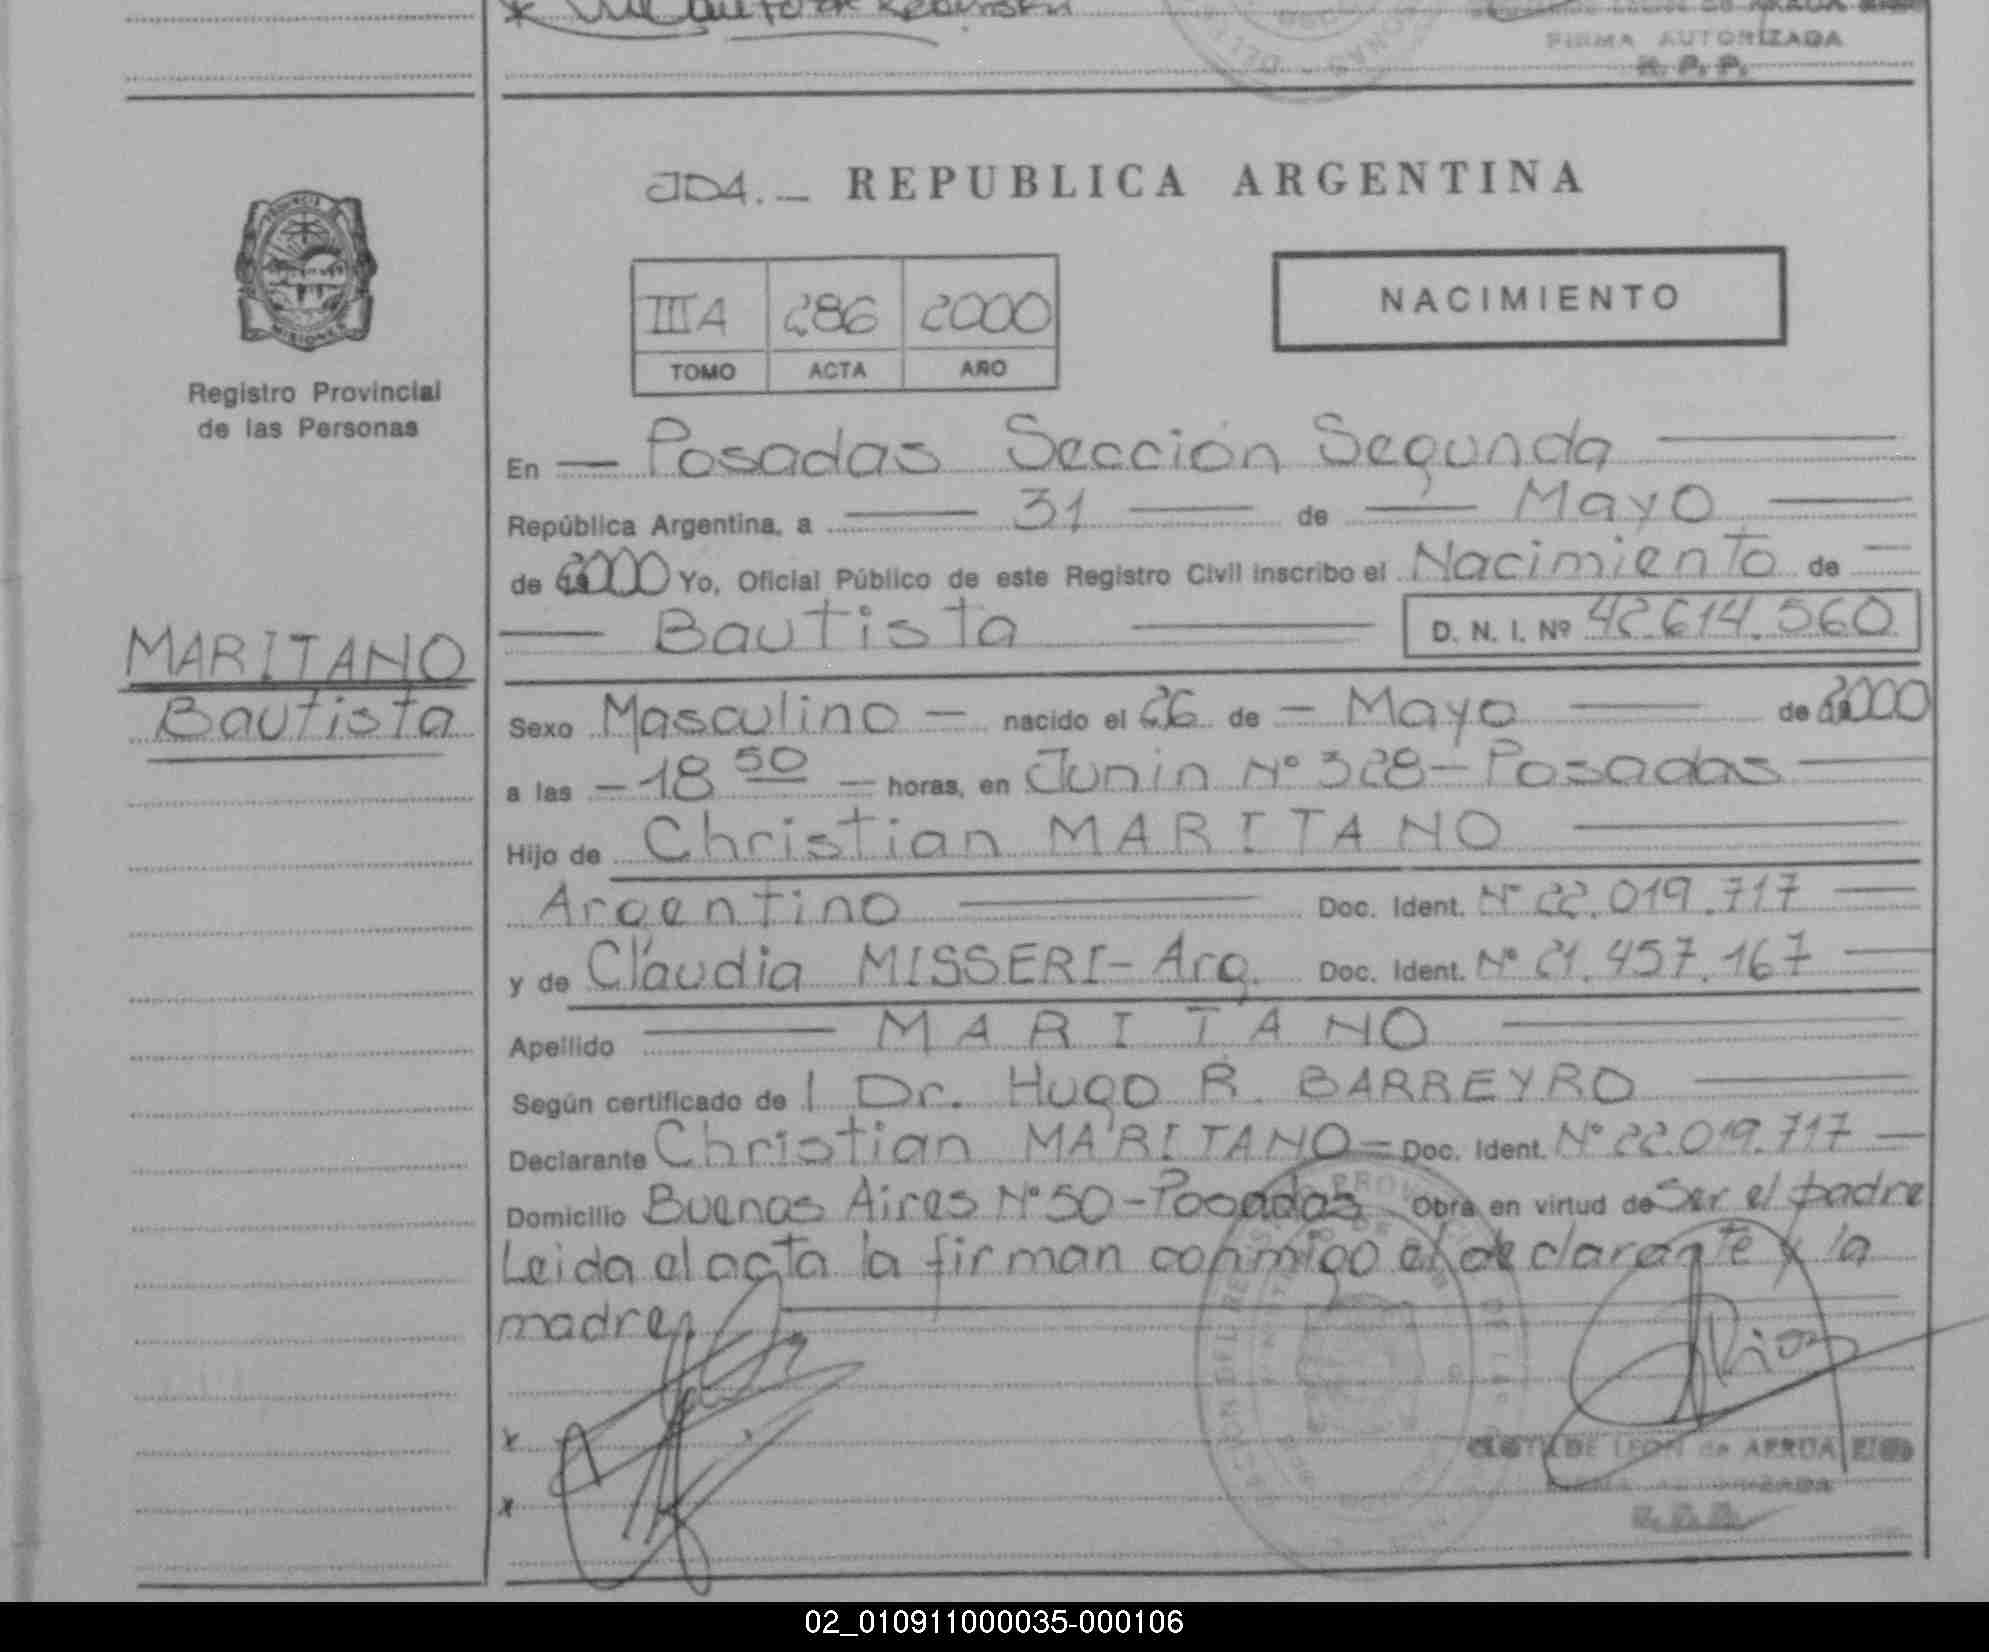 FIRMA AUTORIZADA
R. P. P.
JD4.- REPUBLICA ARGENTINA
NACIMIENTO
IIIA 286 2000
TOMO ACTA AÑO
Registro Provincial
de las Personas
En - Posadas Sección Segunda
República Argentina, a 31 de Mayo
de 2000 Yo, Oficial Público de este Registro Civil inscribo el Nacimiento de
Bautista D. N. I. Nº 42.614.560
MARITANO
Bautista
Sexo Masculino - nacido el 26 de - Mayo de 2000
a las - 18 50 - horas, en Junin Nº 328 - Posadas
Hijo de Christian MARITANO
Argentino Doc. Ident. Nº 22.019.717
y de Claudia MISSERI - Arg. Doc. Ident. Nº 21.457.167
Apellido MARITANO
Según certificado de Dr. Hugo R. BARREYRO
Declarante Christian MARITANO = Doc. Ident. Nº 22.019.717
Domicilio Buenas Aires Nº 50 - Posadas Obra en virtud de Ser el padre
Leida el acta la firman conmigo el declarante y la
madre
CLOTILDE LEON de ARRUA RIOS
FIRMA AUTORIZADA
R. P. P.
02_010911000035-000106